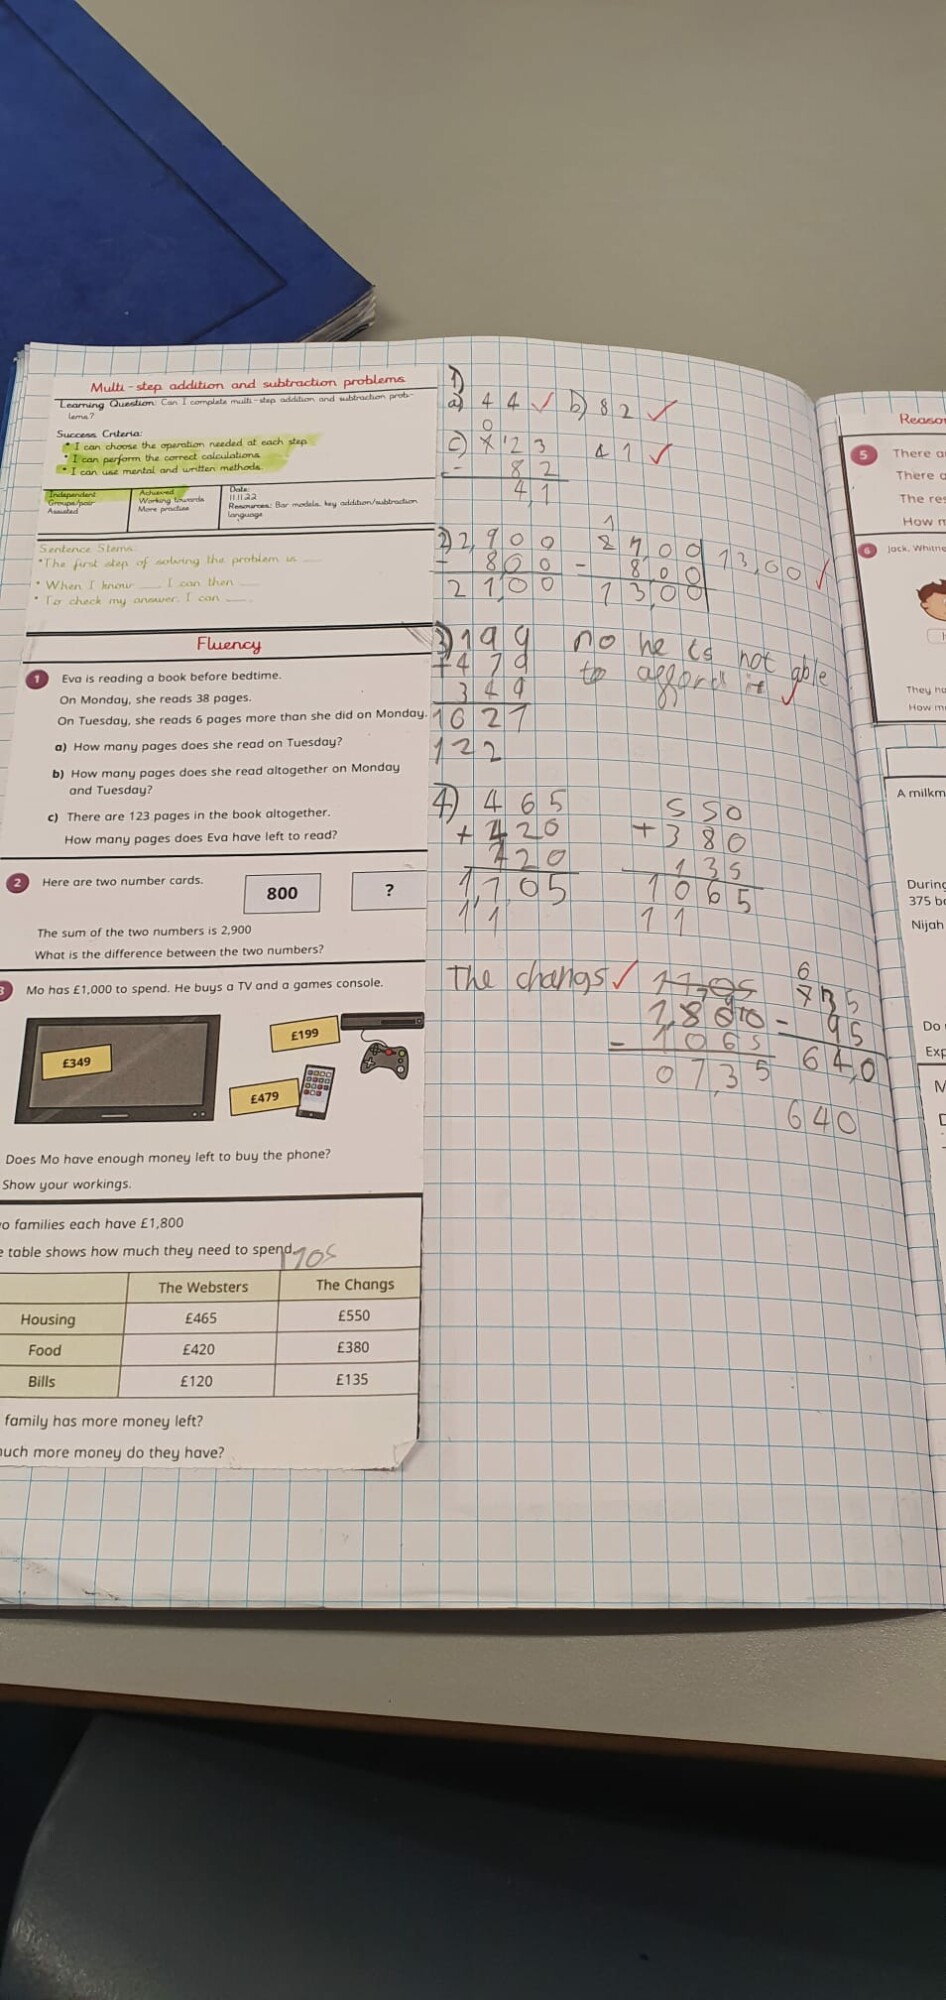 Multi-step addition and subtraction problems
Learning Question: Can I complete multi-step addition and subtraction prob-
lems?
Success Criteria:
* I can choose the operation needed at each step.
* I can perform the correct calculations.
* I can use mental and written methods.
Independent
Groups/pair
Assisted
Achieved
Working towards
More practise
Date:
11.11.22
Resources: Bar models, key addition/subtraction
language
Sentence Stems:
*The first step of solving the problem is ___
* When I know ___ I can then ___
* To check my answer, I can ___.
Fluency
1 Eva is reading a book before bedtime.
On Monday, she reads 38 pages.
On Tuesday, she reads 6 pages more than she did on Monday.
a) How many pages does she read on Tuesday?
b) How many pages does she read altogether on Monday
and Tuesday?
c) There are 123 pages in the book altogether.
How many pages does Eva have left to read?
2 Here are two number cards.
800 ?
The sum of the two numbers is 2,900
What is the difference between the two numbers?
3 Mo has £1,000 to spend. He buys a TV and a games console.
£349
£199
£479
Does Mo have enough money left to buy the phone?
Show your workings.
o families each have £1,800
e table shows how much they need to spend.
The Websters The Changs
Housing £465 £550
Food £420 £380
Bills £120 £135
family has more money left?
uch more money do they have?
1)
a) 44 b) 82
c) 123 41
- 82
41
2) 2,900
- 800
2100
- 8,00
13,00
13,00
3) 199
+ 479
349
1027
122
no he is not able
to afford it
4) 465
+ 420
1,105
11
550
+ 380
135
1065
11
The changs
- 1065
0735
- 95
640
640
Reaso
5 There a
There a
The re
How m
6 Jack, Whitne
They ha
How m
A milkm
During
375 b
Nijah
Do
Exp